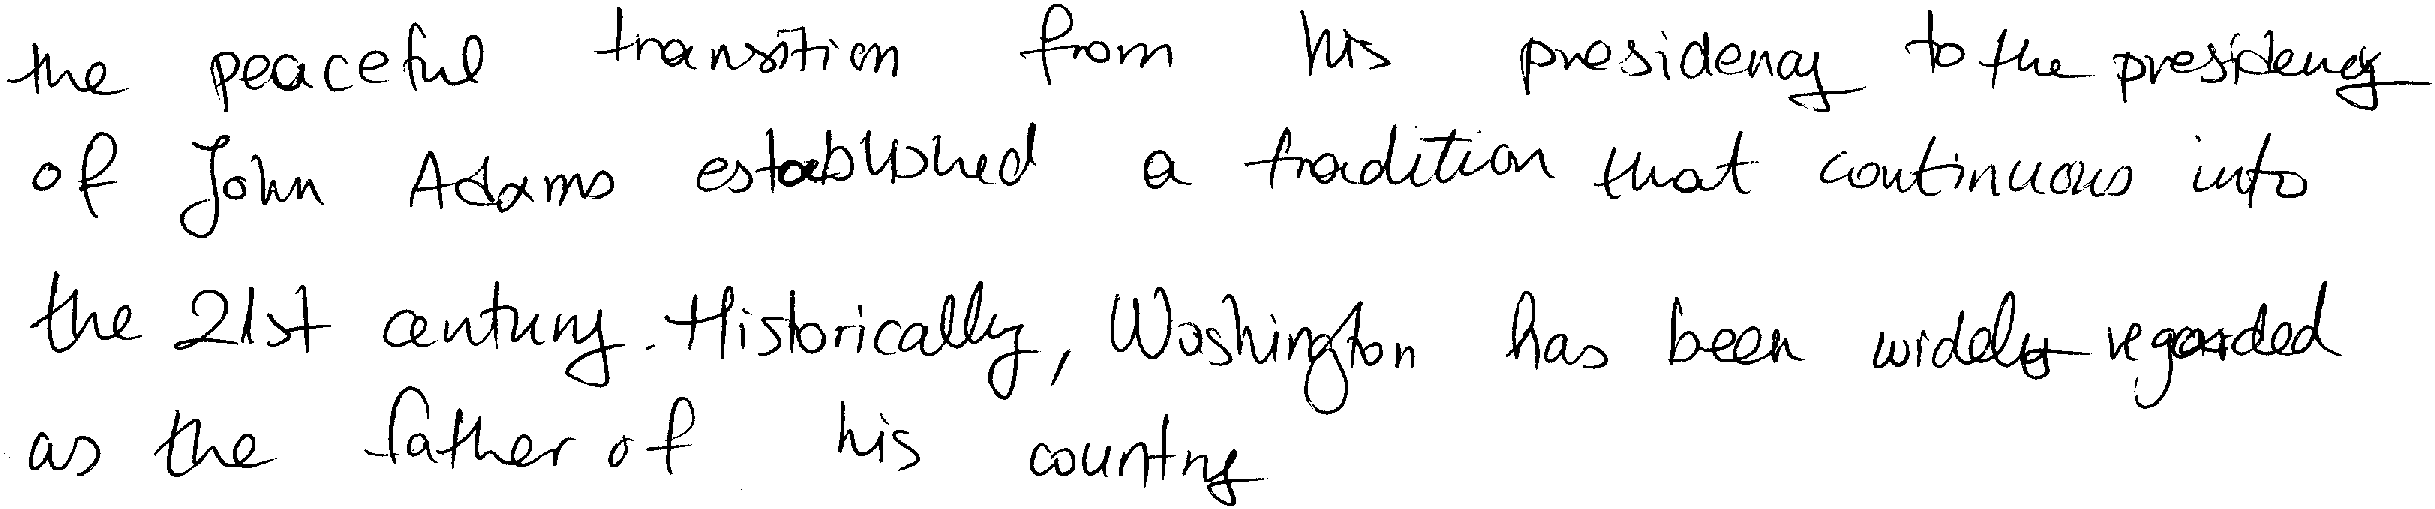 the peaceful transition from his presidency to the presidency
of John Adams established a tradition that continuous into
the 21st century. Historically, Washington has been widely regarded
as the father of his country